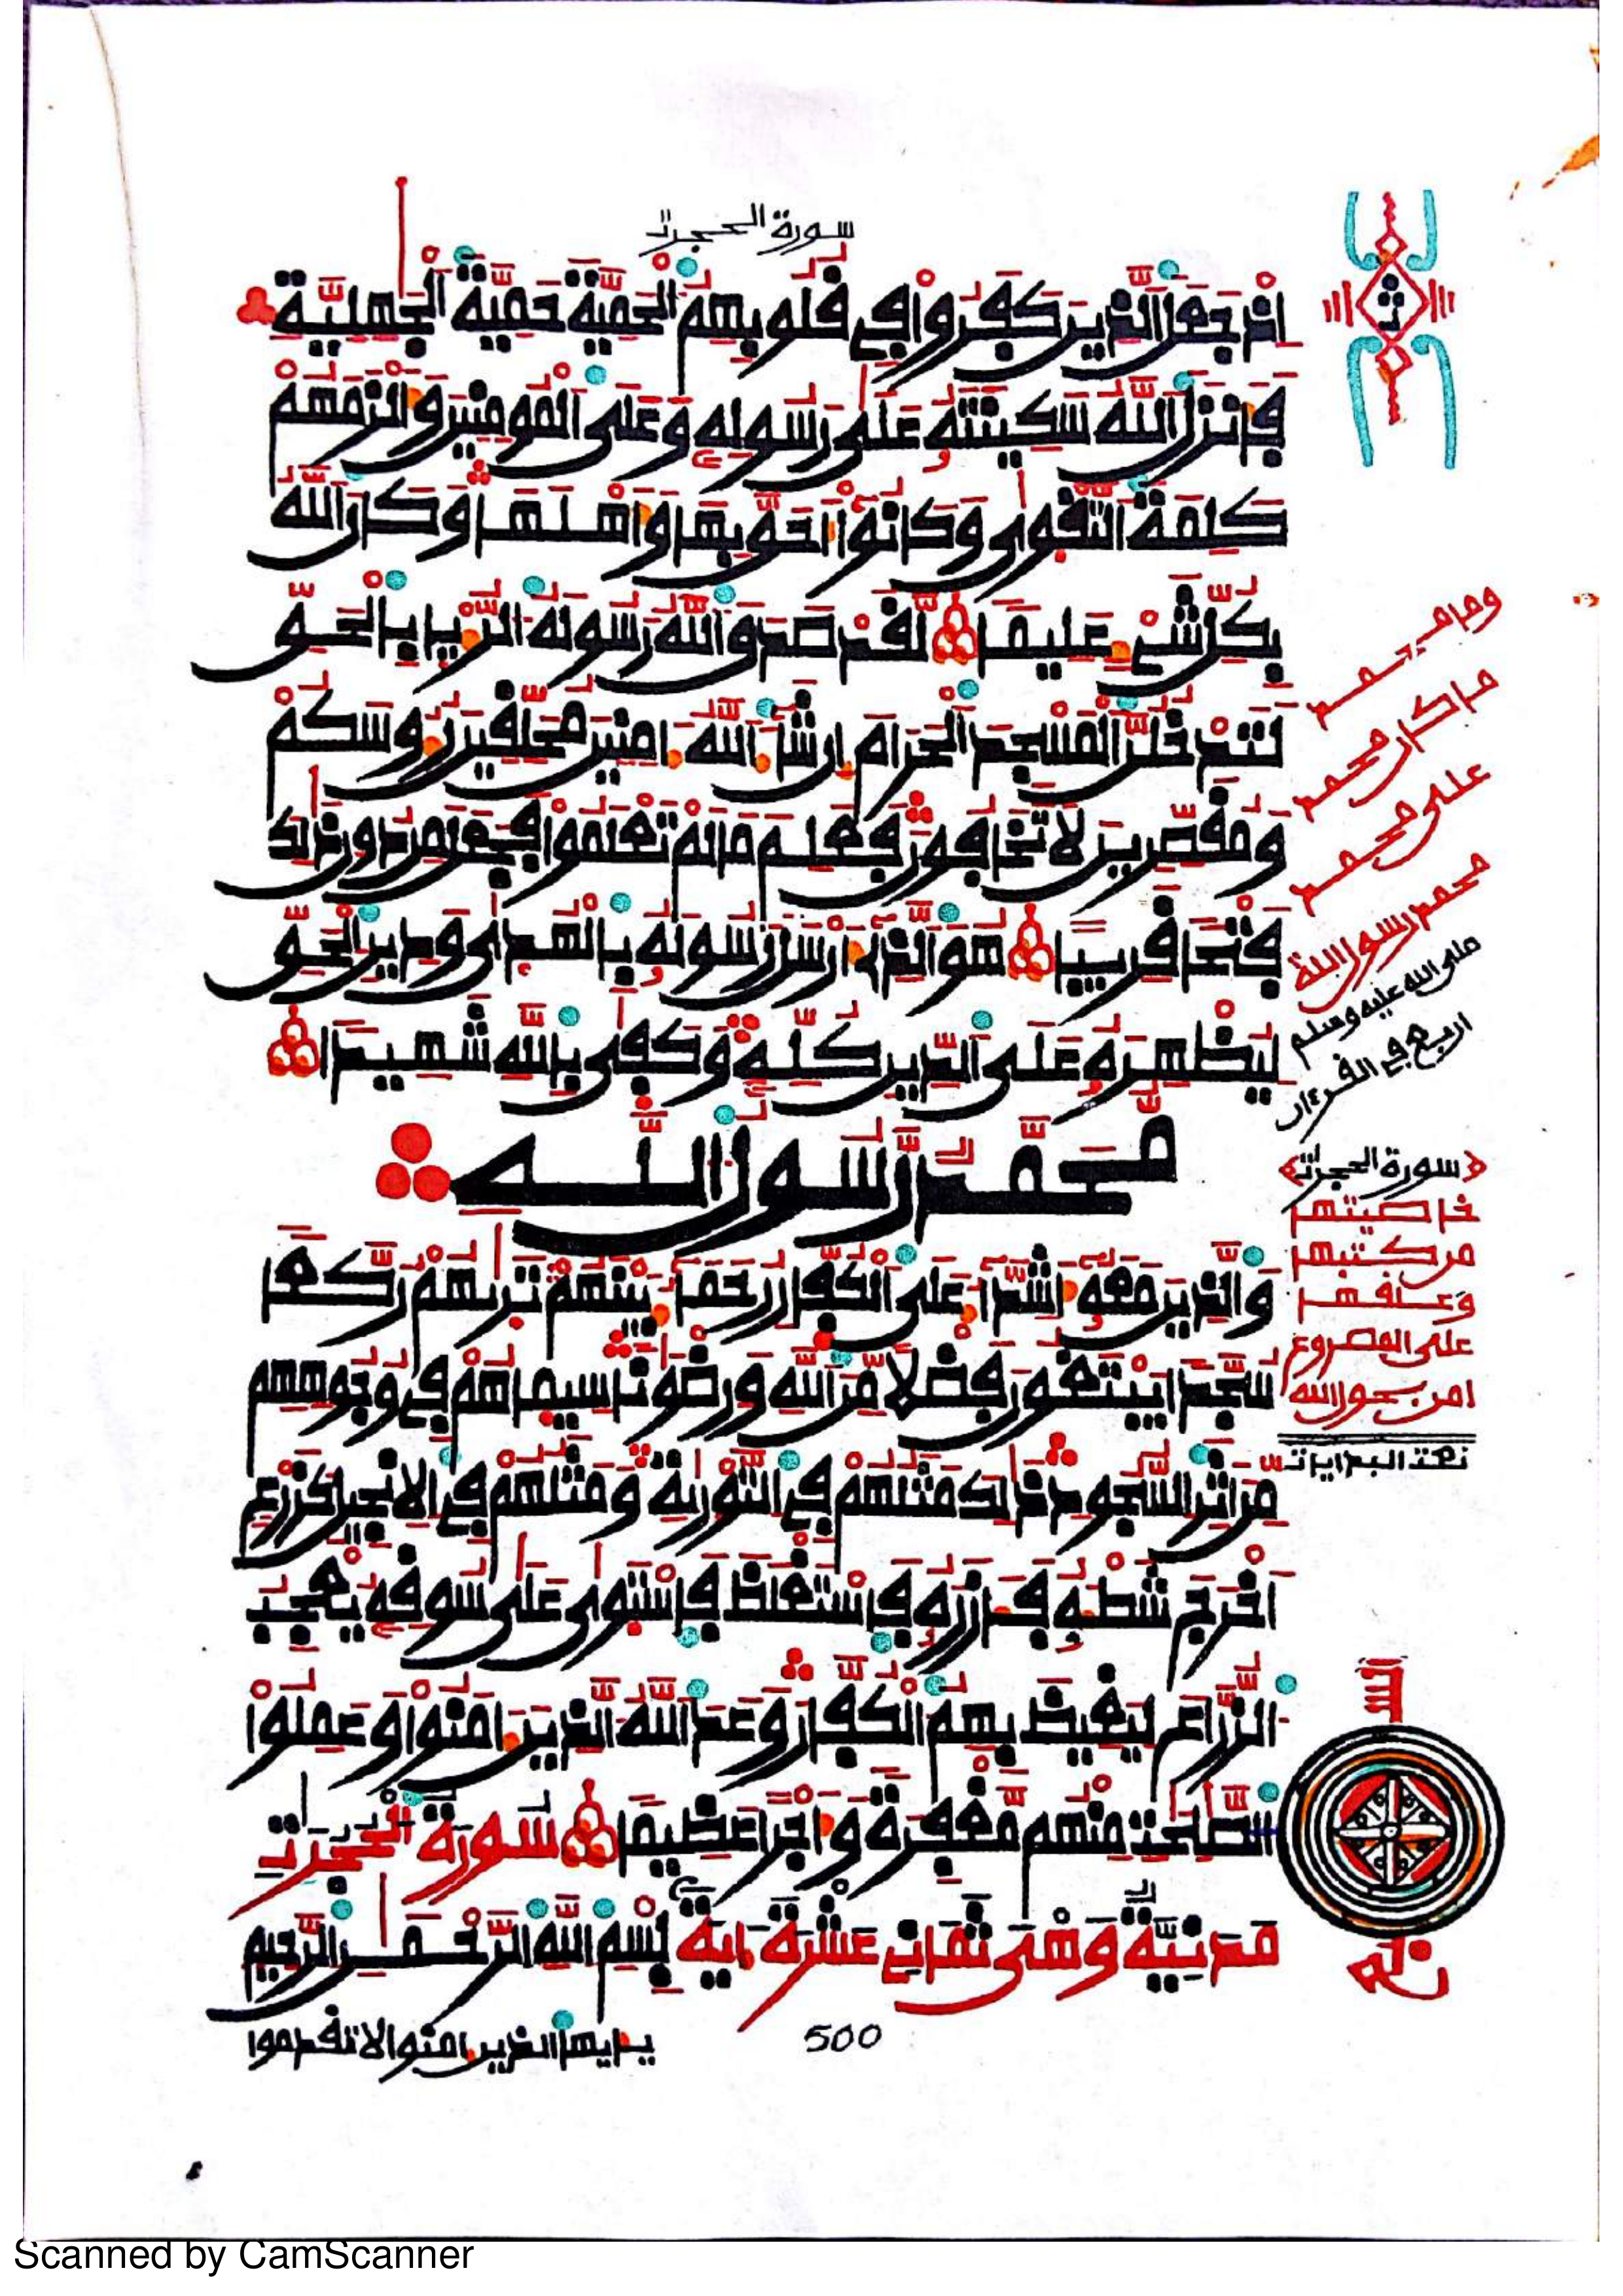 سورة الحجرت
إذ جعل الذين كفروا في قلوبهم الحمية حمية الجهلية
فأنزل الله سكينته على رسوله وعلى المومنين وألزمهم
كلمة التقوى وكانوا أحق بها وأهلها وكان الله
بكل شيء عليما لقد صدق الله رسوله الريا بالحق
لتدخلن المسجد الحرام إن شاء الله ءامنين محلقين رءوسكم
ومقصرين لا تخافون فعلم ما لم تعلموا فجعل من دون ذلك
فتحا قريبا هو الذي أرسل رسوله بالهدى ودين الحق
ليظهره على الدين كله وكفى بالله شهيدا
محمد رسول الله
والذين معه أشداء على الكفار رحماء بينهم تريهم ركعا
سجدا يبتغون فضلا من الله ورضونا سيماهم في وجوههم
من أثر السجود ذلك مثلهم في التورية ومثلهم في الانجيل كزرع
أخرج شطه فازره فاستغلظ فاستوى على سوقه يعجب
الزراع ليغيظ بهم الكفار وعد الله الذين ءامنوا وعملوا
الصلحت منهم مغفرة وأجرا عظيما سورة الحجرت
مدنية وهي ثمان عشرة ءاية بسم الله الرحمن الرحيم
يأيها الذين ءامنوا لا تقدموا
500
ثمن
وما محمد
ما كان محمد
على محمد
محمد رسول الله
صلى الله عليه وسلم
اربع في القرءان
سورة الحجرت
خاصيتها
من كتبها
وعلقها
على المصروع
امن بحول الله
Scanned by CamScanner